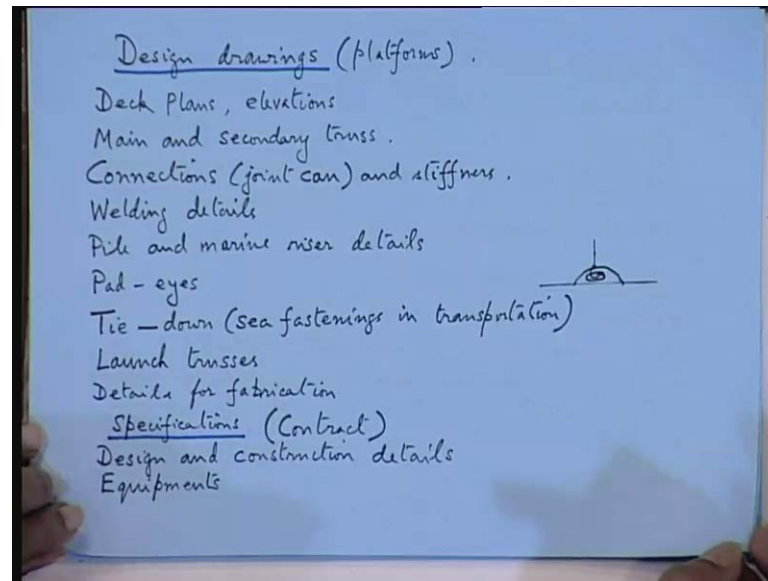 Design drawings (platforms).
Deck Plans, elevations
Main and secondary truss.
Connections (joint can) and stiffners.
Welding details
Pile and marine riser details
Pad-eyes
Tie-down (sea fastenings in transportation)
Launch trusses
Details for fabrication
Specifications (Contract)
Design and construction details
Equipments